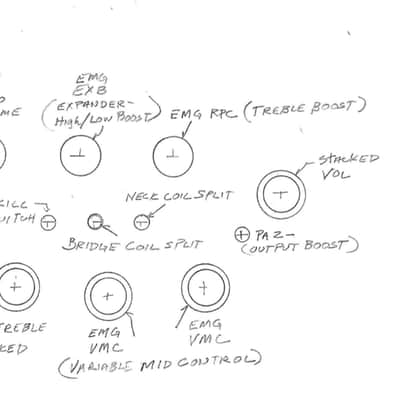 EMG
EXB
(EXPANDER-
High/Low Boost)
EMG RPC (TREBLE BOOST)
STACKED
VOL
NECK COIL SPLIT
BRIDGE COIL SPLIT
PA 2-
(OUTPUT BOOST)
TREBLE
EMG
VMC
EMG
VMC
(VARIABLE MID CONTROL)